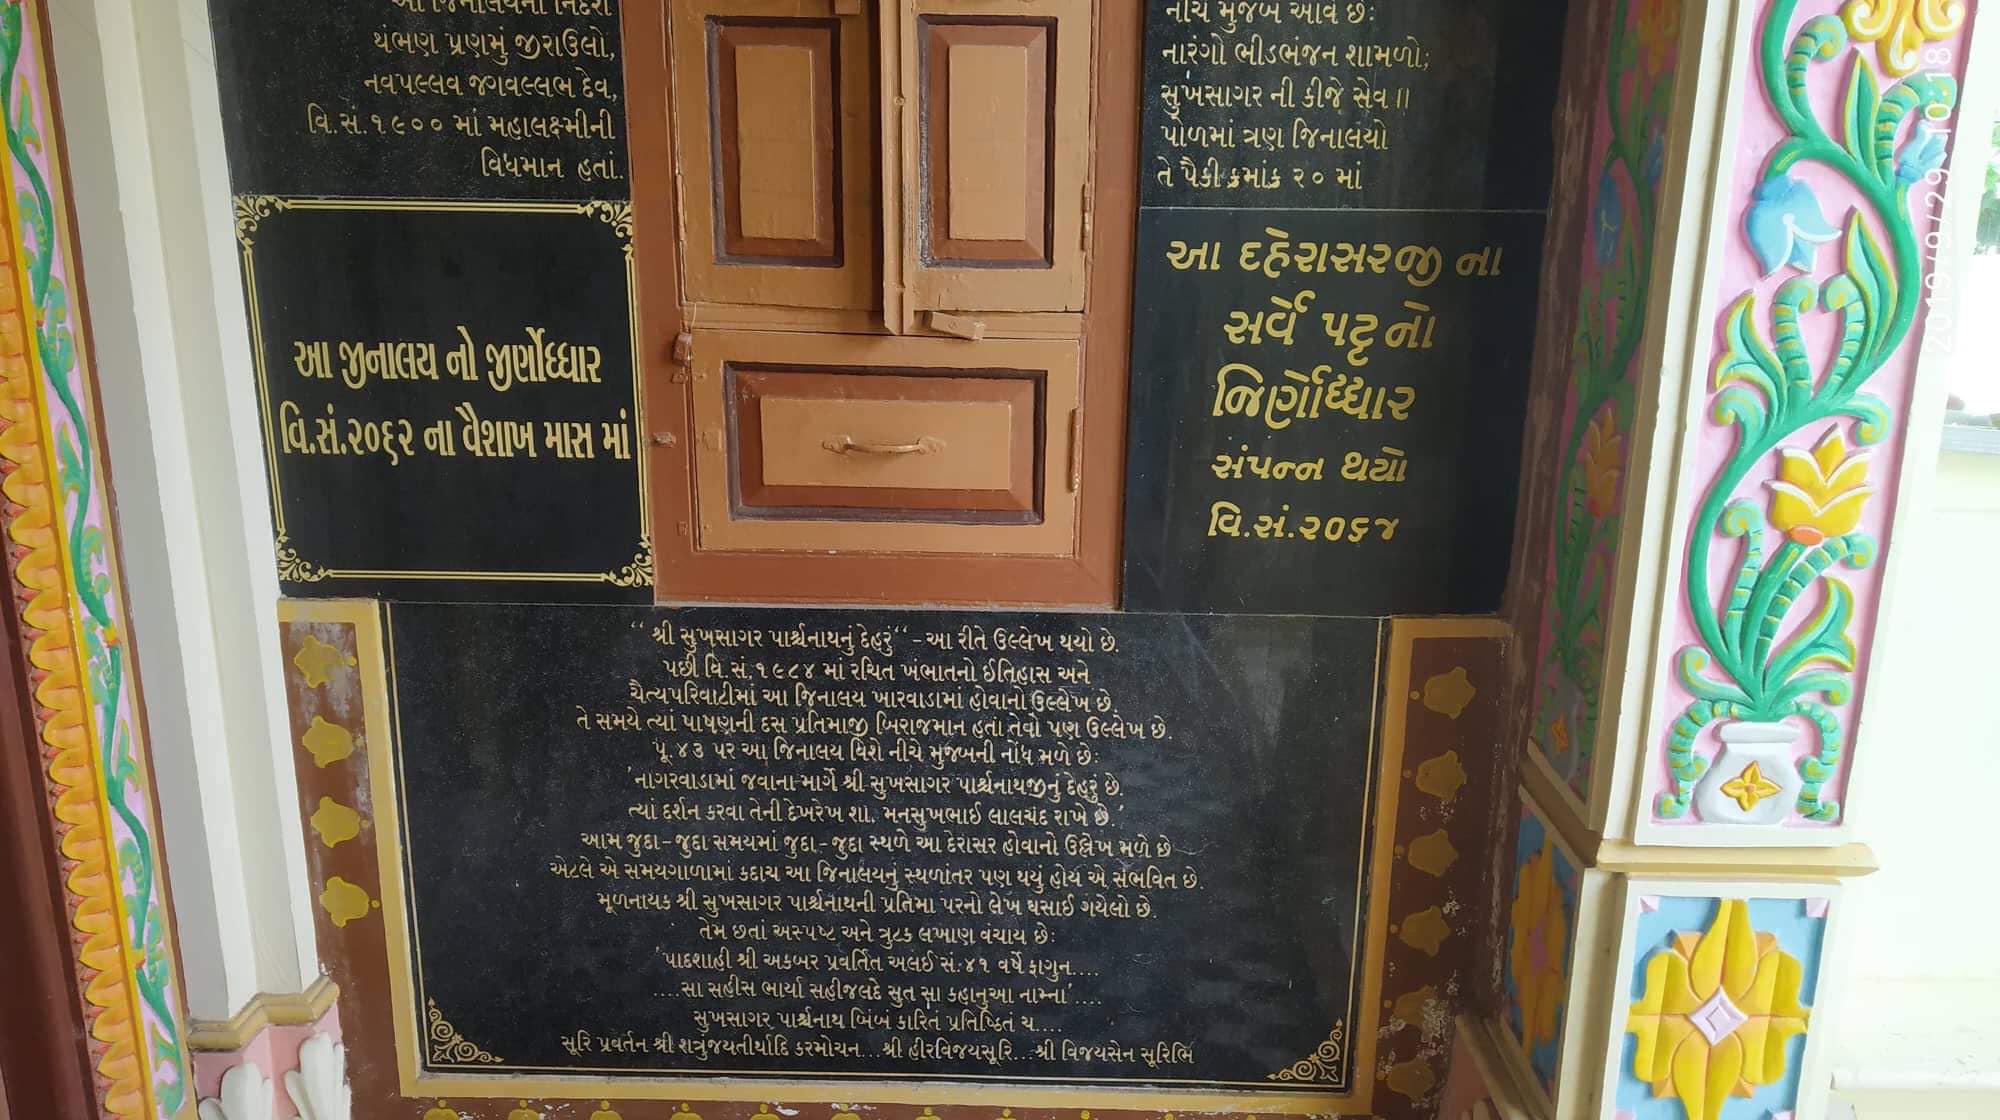 આ જિનાલયની
થંભણ પ્રણમું જીરાઉલો,
નવપલ્લવ જગવલ્લભ દેવ,
વિ.સં.૧૯૦૦ માં મહાલક્ષ્મીની
વિધમાન હતાં.
નીચે મુજબ આવે છે:
નારંગો ભીડભંજન શામળો;
સુખસાગર ની કીજે સેવ॥
પોળમાં ત્રણ જિનાલયો
તે પૈકી ક્રમાંક ૨૦ માં
આ જીનાલય નો જીર્ણોધ્ધાર
વિ.સં.૨૦૬૨ ના વૈશાખ માસ માં
આ દહેરાસરજી ના
સર્વે પટ્ટ નો
જિર્ણોધ્ધાર
સંપન્ન થયો
વિ.સં.૨૦૬૪
“ શ્રી સુખસાગર પાર્શ્વનાથનું દેહરું“ - આ રીતે ઉલ્લેખ થયો છે.
પછી વિ.સં.૧૯૮૪ માં રચિત ખંભાતનો ઈતિહાસ અને
ચૈત્યપરિવાટીમાં આ જિનાલય ખારવાડામાં હોવાનો ઉલ્લેખ છે.
તે સમયે ત્યાં પાષણની દસ પ્રતિમાજી બિરાજમાન હતાં તેવો પણ ઉલ્લેખ છે.
પૂ. ૪૩ પર આ જિનાલય વિશે નીચે મુજબની નોંધ મળે છે:
'નાગરવાડામાં જવાના માર્ગે શ્રી સુખસાગર પાર્શ્વનાથજીનું દેહરું છે.
ત્યાં દર્શન કરવા તેની દેખરેખ શા. મનસુખભાઈ લાલચંદ રાખે છે.'
આમ જુદા-જુદા સમયમાં જુદા-જુદા સ્થળે આ દેરાસર હોવાનો ઉલ્લેખ મળે છે
એટલે એ સમયગાળામાં કદાચ આ જિનાલયનું સ્થળાંતર પણ થયું હોય એ સંભવિત છે.
મૂળનાયક શ્રી સુખસાગર પાર્શ્વનાથની પ્રતિમા પરનો લેખ ઘસાઈ ગયેલો છે.
તેમ છતાં અસ્પષ્ટ અને ત્રુટક લખાણ વંચાય છે:
'પાદશાહી શ્રી અકબર પ્રવર્તિત અલઈ સં.૪૧ વર્ષે ફાગુન....
....સા સહીસ ભાર્યા સહીજલદે સુત સા કહાનુઆ નામ્ના'....
સુખસાગર પાર્શ્વનાથ બિંબં કારિતં પ્રતિષ્ઠિતં ચ....
સૂરિ પ્રવર્તન શ્રી શત્રુંજયતીર્થાદિ કરમોચન...શ્રી હીરવિજયસૂરિ...શ્રી વિજયસેન સૂરિભિ
2019/9/29 10:18